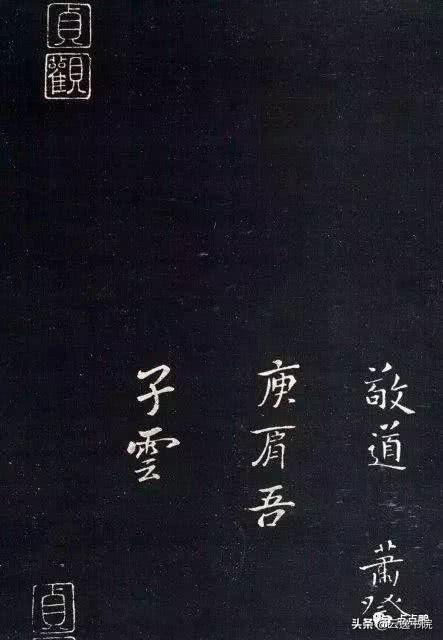 敬道 蕭
庾肩吾
子雲
貞觀
貞
头条